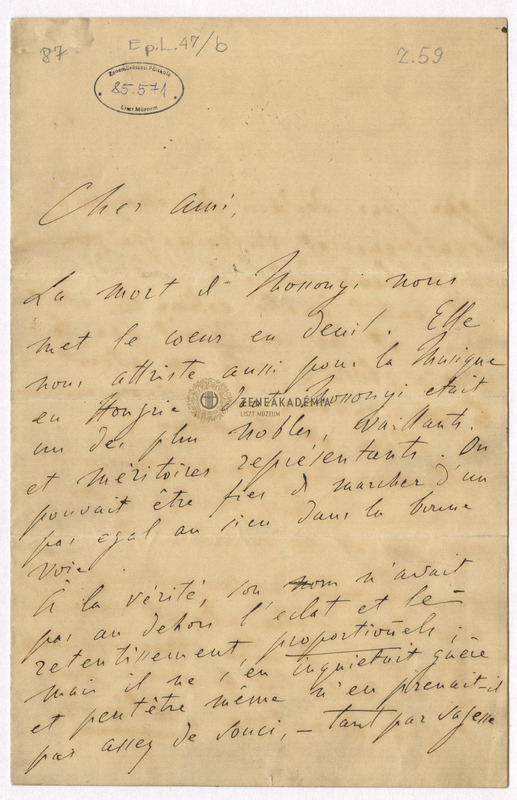 87
Ep.L.47/b
2.59
Zeneművészeti Főiskola
85.571
Liszt Múzeum
Cher ami,
La mort de Mosonyi nous
met le coeur en deuil. Elle
nous attriste aussi pour la Musique
en Hongrie dont Mosonyi etait
un des plus nobles, vaillants,
et méritoires représentants. On
pouvait être fier de marcher d'un
pas egal au sien dans la bonne
voie.
À la vérité, son nom n'avait
pas au dehors l'eclat et le
retentissement, proportionels;
mais il ne s'en inquietait guère
et peutêtre même n'en prenait-il
pas assez de souci, – tant par sagesse
ZENEAKADÉMIA
LISZT MÚZEUM